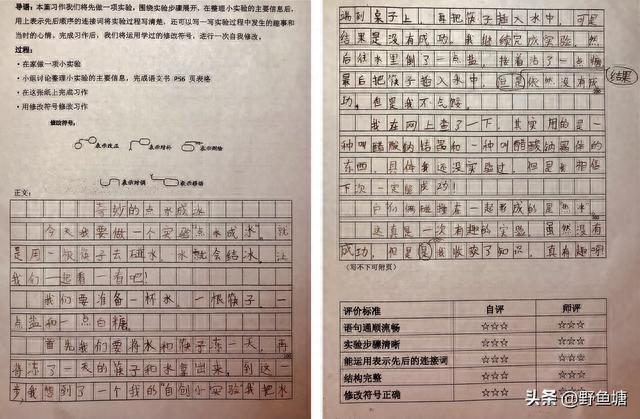 导语：本篇习作我们将先做一项实验，围绕实验步骤展开，在整理小实验的主要信息后，
用上表示先后顺序的连接词将实验过程写清楚，还可以写一写实验过程中发生的趣事和
当时的心情。完成习作后，我们将运用学过的修改符号，进行一次自我修改。
过程：
· 在家做一项小实验
· 小组讨论整理小实验的主要信息，完成语文书 P56 页表格
· 在这张纸上完成习作
· 用修改符号修改习作
修改符号：
表示改正 表示增补 表示删除
表示对调 表示移动
正文：
奇妙的点水成冰
今天我要做一个实验“点水成冰”，就
是用一根筷子去碰水，水就会结冰，让
我们一起看一看吧！
我们要准备一杯水、一根筷子、一
点盐和一点白糖。
首先我们要将水和筷子冻一天，再
将冻了一天的筷子和水拿出来，到这一
步，我想到了一个我的“自创小实验”我把水
踢到桌子上，再把筷子插入水中，可是
结果是没有成功。我继续完成实验，然
后往水里倒了一点盐，接着沾了一点糖
最后把筷子插入水中，但是依然没有成
结果
功。但是我不气馁。
我在网上查了一下，其实用的是一
种叫醋酸钠结晶和一种叫醋酸钠晶体的
东西，具体我还没实验过，但是我相信
下次一定能成功！
它们俩碰撞在一起形成的是“热冰”
这真是一次有趣的实验，虽然没有
成功，但是是我收获了知识，真有趣呀！
（写不下可附页）
评价标准 自评 师评
语句通顺流畅 ☆☆☆ ☆☆☆
实验步骤清晰 ☆☆☆ ☆☆☆
能运用表示先后的连接词 ☆☆☆ ☆☆☆
结构完整 ☆☆☆ ☆☆☆
修改符号正确 ☆☆☆ ☆☆☆
头条 @野鱼塘